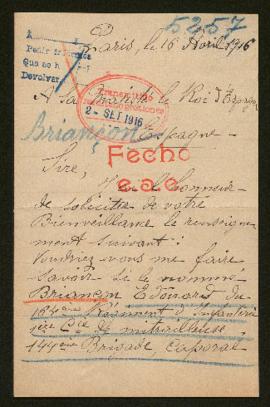 5257
Paris, le 16 Avril 1916
Pedir
Que no h
Devolver
A Sa Majesté le Roi d'Espagne
2-SET 1916
Briançon
Espagne
Fecho
Sire,
J'ai l'honneur
de solliciter de votre
Bienveillance le renseigne
ment suivant :
Voudriez vous me faire
savoir si le nommé
Briançon Edouard du
Régiment d'infanterie
Cie de mitrailleuse
144ème Brigade Caporal